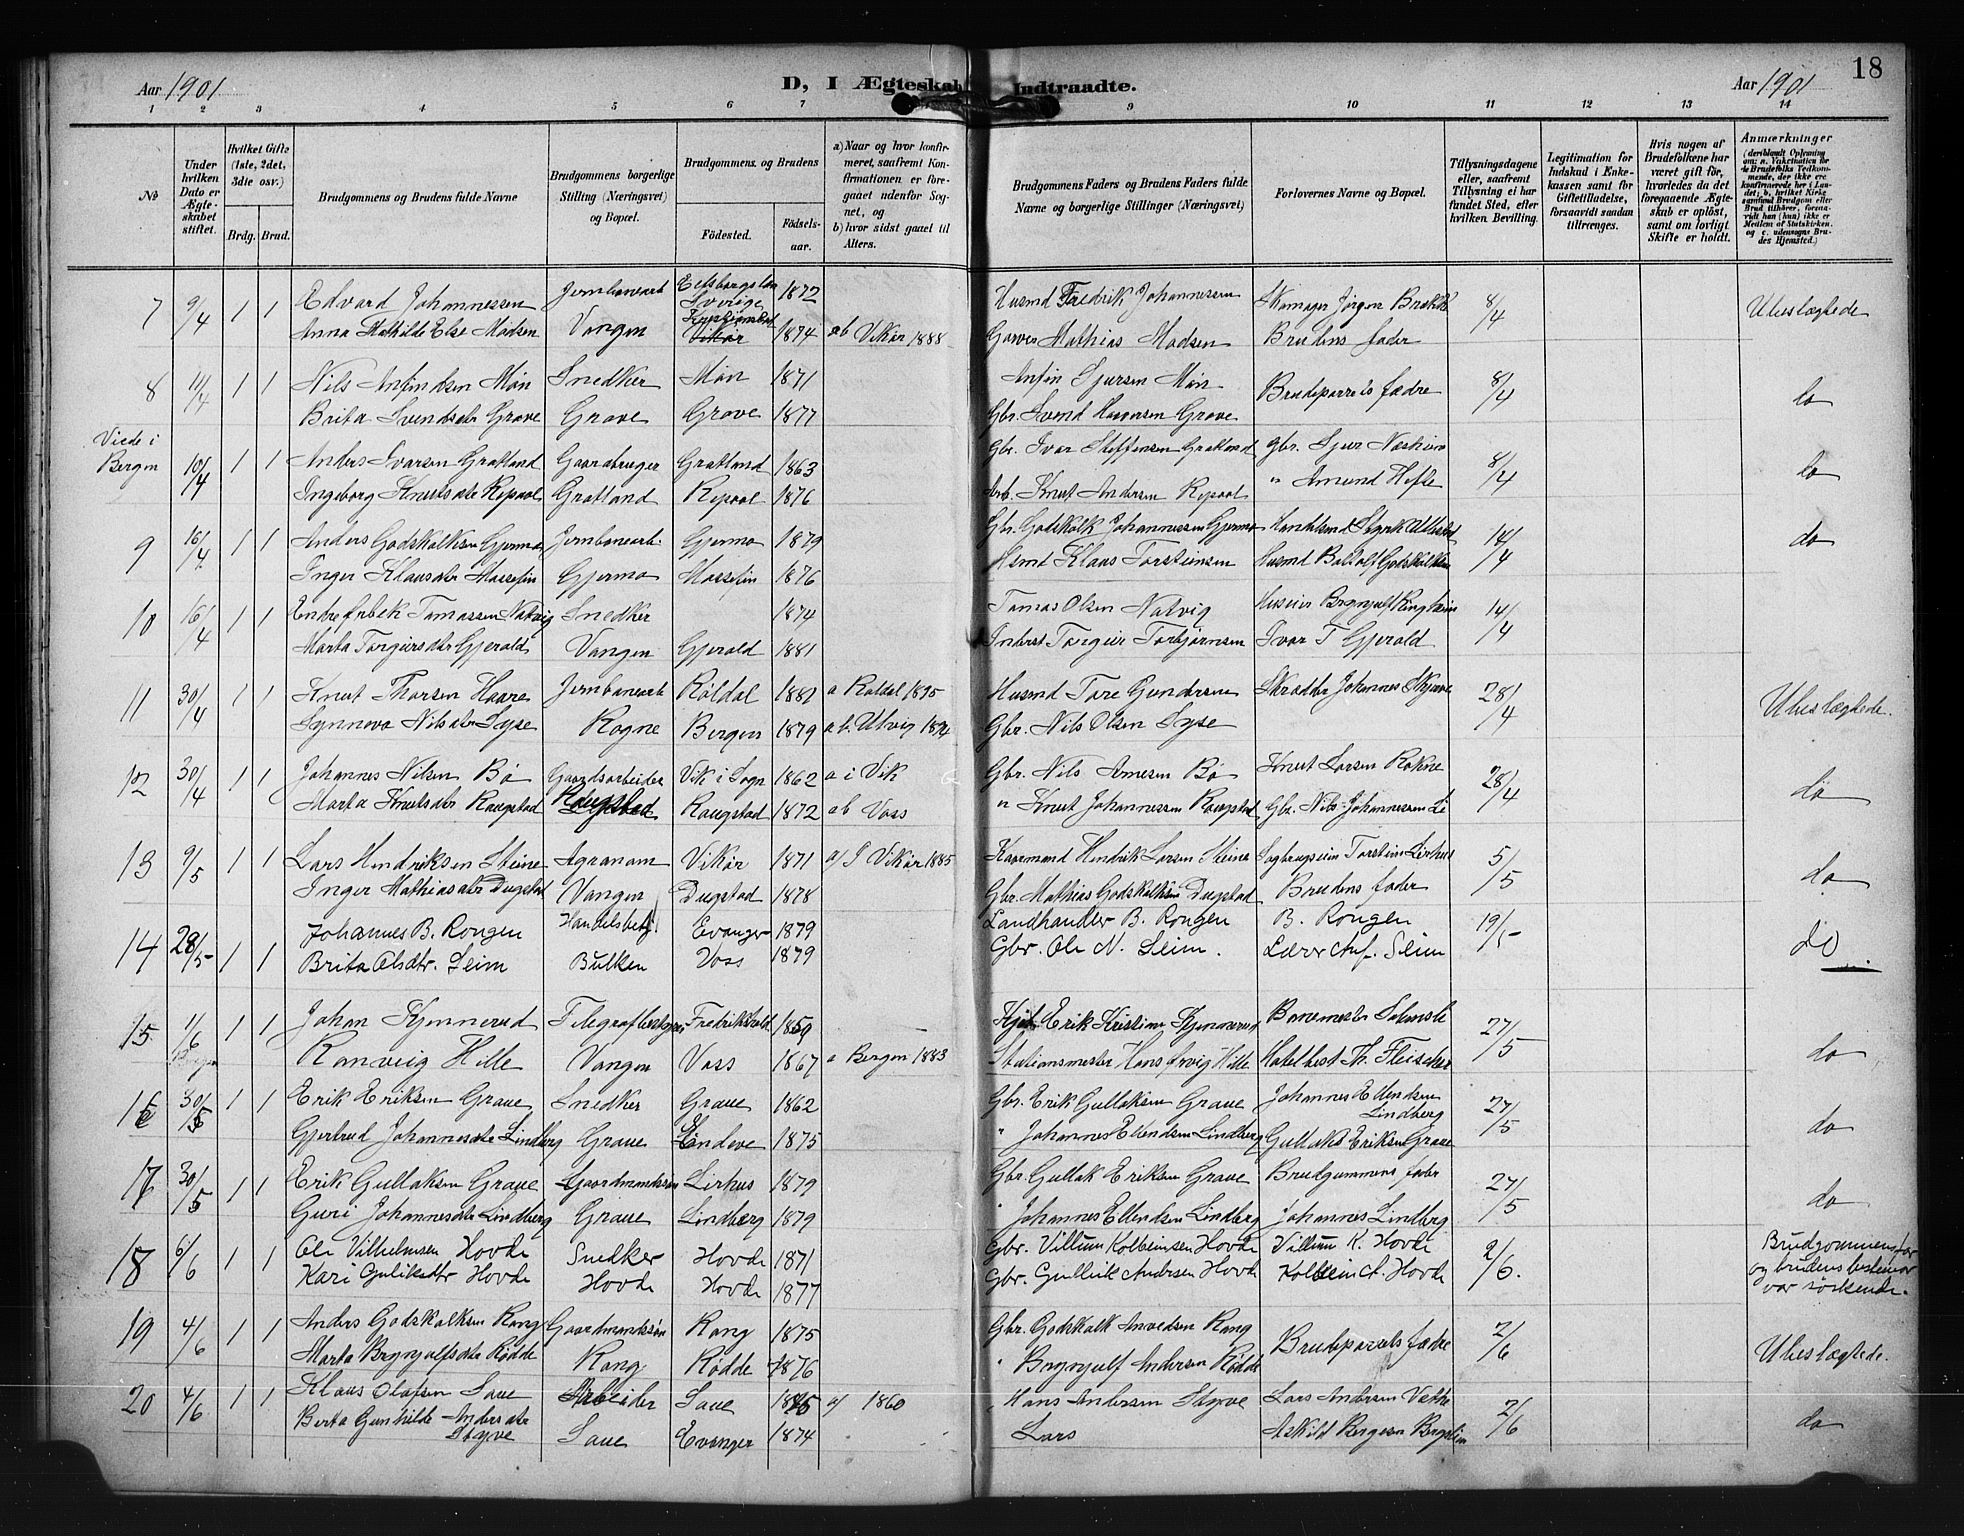 Aar 1901 D, I Ægteskab Indtraadte. Aar 1901 18
1 2 3 4 5 6 7 9 10 11 12 13 14
No
Under hvilken Dato er Ægteskabet stiftet.
Hvilket Gifte (1ste, 2det, 3die osv.)
Brdg. Brud.
Brudgommens og Brudens fulde Navne
Brudgommens borgerlige Stilling (Næringsvei) og Bopæl.
Brudgommens og Brudens
Födested. Födselsaar.
a) Naar og hvor konfirmeret, saafremt Konfirmationen er foregaaet udenfor Sognet, og
b) hvor sidst gaaet til Alters.
Brudgommens Faders og Brudens Faders fulde Navne og borgerlige Stillinger (Næringsvei)
Forlovernes Navne og Bopæl.
Tillysningsdagene eller, saafremt Tillysning ei har fundet Sted, efter hvilken Bevilling.
Legitimation for Indskud i Enkekassen samt for Giftetilladelse, forsaavidt saadan tiltrænges.
Hvis nogen af Brudefolkene har været gift för, hvorledes da det foregaaende Ægteskab er oplöst, samt om lovligt Skifte er holdt.
Anmærkninger
7 9/4 1 1 Edvard Johannessen Jernbanearb Sverige 1872 Husmd Fredrik Johannessen Skomager Jørgen 8/4 Ubeslægtede
Anna Mathilde Else Madsen Vangen Vikør 1874 ab Vikør 1888 Garver Mathias Madsen Brudens fader
8 11/4 1 1 Nils Anfindsen Møn Snedker Møn 1871 Anfin Sjursen Møn Brudeparrets fædre 8/4 do
Brita Svendsdtr Grove Grove Grove 1877 Gbr. Svend Grove
Viede i Bergen 10/4 1 1 Anders Ivarsen Grotland Gaardbruger Grotland 1863 Gbr. Ivar Steffensen Grotland Gbr. Sjur 8/4 do
Ingeborg Knutsdtr Repaal Grotland Repaal 1876 Knut Andersen Repaal " Amund Hefte
9 16/4 1 1 Anders Godskalksen Gjermo Jernbanearb. Gjermo 1879 Gbr. Godskalk Johannessen Gjermo Handelsmd Styrk 14/4 do
Inger Klausdtr Mossefin Gjermo Mossefin 1876 Husmd Klaus Torsteinsen Husmd Godskalksen
10 16/4 1 1 Endre Tomassen Natvig Snedker 1874 Tomas Olsen Natvig Brynjulf Ringheim 14/4
Marta Torgiersdtr Gjerald Vangen Gjerald 1881 Inderst Torgier Torbjørnsen Ivar T Gjerald
11 30/4 1 1 Knut Thorsen Haare Jernbanearb Røldal 1882 a Røldal 1895 Husmd Tore Gundersen Skrædder Johannes Skjerve 28/4 Ubeslægtede.
Synnova Nilsdtr Syse Rogne Bergen 1879 ab. Ulvig Gbr. Nils Olsen Syse
12 30/4 1 1 Johannes Nilsen Bø Gaardsarbeider Vik i Sogn 1862 a i Vik Gbr. Nils Arnesen Bø Knut Larsen Rokne 28/4 do
Marta Knutsdtr Raugstad Raugstad Raugstad 1872 ab Voss " Knut Johannessen Raugstad Gbr. Nils Johannessen Li
13 9/5 1 1 Lars Hendriksen Steine Agronom Vikør 1871 a) I Vikør 1885 Kaarmand Hendrik Larsen Steine Sagbrugseier Torstein Lirhus 5/5 do
Inger Mathiasdtr Dugstad Vangen Dugstad 1878 Gbr. Mathias Godskalksen Dugstad Brudens fader
14 28/5 1 1 Johannes B. Rongen Handelsbetj. Evanger 1879 Landhandler B. Rongen B. Rongen 19/5 do
Brita Olsdtr. Seim Bulken Voss 1879 Gbr. Ole N. Seim. Lærer Seim
15 1/6 1 1 Johan Kjennerud Telegrafbestyrer Fredrikshald 1859 Erik Kristian Kjennerud 27/5 do
Bergen Ranveig Hille Vangen Voss 1867 a Bergen 1883 Stationsmester Hans Hille Hotelbest Th. Fleischer
16 30/5 1 1 Erik Eriksen Graue Snedker Graue 1862 Gbr. Erik Gullaksen Graue Johannes Ellendsen Lindberg 27/5 do
Gjertrud Johannesdtr Lindberg Graue 1875 " Johannes Ellendsen Lindberg Gullak Eriksen Graue
17 30/5 1 1 Erik Gullaksen Graue Gaardmandssøn Lirhus 1879 Gbr. Gullak Eriksen Graue Brudgommens fader 27/5 do
Guri Johannesdtr Lindberg Graue Lindberg 1879 " Johannes Ellendsen Lindberg Johannes Lindberg
18 6/6 1 1 Ole Villumsen Hovde Snedker Hovde 1871 Gbr. Villum Kolbeinsen Hovde Villum K. Hovde 2/6. Brudgommens far og brudens bestemor var søskende.
Kari Guliksdtr Hovde Hovde Hovde 1877 Gbr. Gullik Andersen Hovde Kolbein A. Hovde
19 4/6 1 1 Anders Godskalksen Rong Gaardmandssøn Rong 1875 Gbr. Godskalk Anvedsen Rong Brudeparrets fædre 2/6 Ubeslægtede.
Marta Brynjulfsdtr Rødde Rong Rødde 1876 " Brynjulf Andersen Rødde
20 4/6 1 1 Klaus Olafsen Saue Arbeider Saue a) 1860 " Hans Andersen Styve Lars Andersen 2/6 do
Berta Gunhilde Andersdtr Styve Saue Evanger 1874 Lars Askild